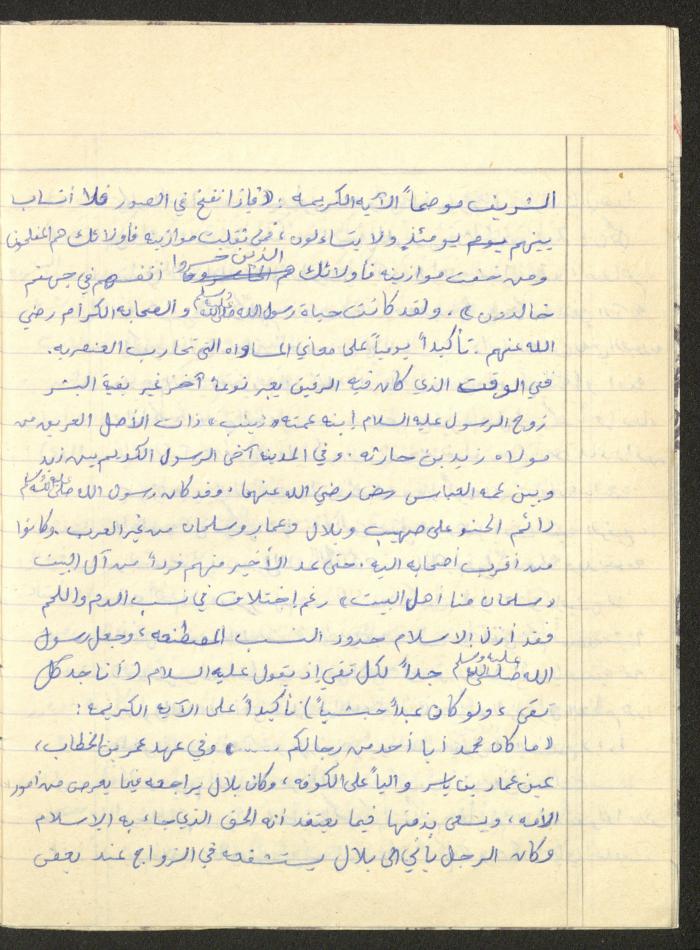 الشريف موضحاً الآيه الكريمه : «فإذا نفخ في الصور فلا أنساب
بينهم يومئذٍ ولا يتساءلون ، فمن ثقلت موازينه فأولائك هم المفلحون
ومن خفت موازينه فأولائك الذين خسروا أنفسهم في جهنم
خالدون» . ولقد كانت حياة رسول الله صلى الله عليه وسلم والصحابه الكرام رضي
الله عنهم . تأكيداً يومياً على معاني المساواه التي تحارب العنصريه .
ففي الوقت الذي كان فيه الرقيق يعبر نوعاً آخر غير بقية البشر
زوج الرسول عليه السلام إبنه عمته «زينب» ذات الأصل العريق من
مولاه زيد بن حارثه . وفي المدينه آخى الرسول الكريم بين زيد
وبين عمه العباس رضي الله عنهما . وقد كان رسول الله صلى الله عليه وسلم
دائم الحنو على صهيب وبلال وعمار وسلمان من غير العرب . وكانوا
من أقرب أصحابه اليه . حتى عد الأخير منهم فرداً من آل البيت
«سلمان منا أهل البيت» رغم إختلاف في نسب الدم واللحم
فقد أزال الاسلام حدود النسب المصطنعه ، وجعل رسول
الله صلى الله عليه وسلم جداً لكل تقي إذ يقول عليه السلام (أنا جد كل
تقي ، ولو كان عبداً حبشياً) تأكيداً على الآيه الكريمه :
«ما كان محمد أبا أحد من رجالكم ..... » وفي عهد عمر بن الخطاب ،
عين عمار بن ياسر والياً على الكوفه ، وكان بلال يراجعه فيما يعرض من أمور
الأمه ، ويسعى بذمتها فيما يعتقد أنه الحق الذي جاء به الاسلام
وكان الرجل يأتي الى بلال يستشفعه في الزواج عند بعض